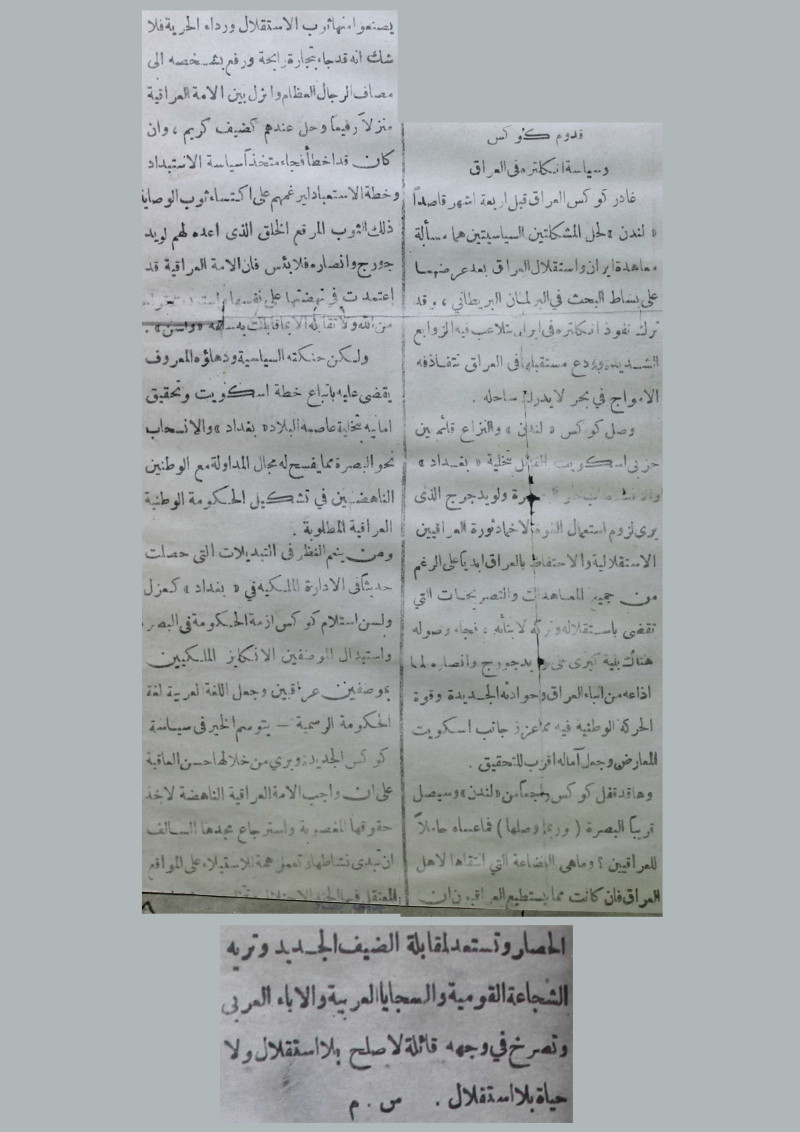 قدوم كوكس
وسياسة انكلتره فى العراق
غادر كوكس العراق قبل اربعة اشهر قاصداً
« لندن » لحل المشكلتين السياسيتين هما مسألة
معاهدة ايران واستقلال العراق بعد عرضهما
على بساط البحث في البرلمان البريطاني ، وقد
ترك نفوذ انكلتره فى ايران تتلاعب فيه الزوابع
الشديدة وودع مستقبلها فى العراق تتقاذفه
الامواج في بحر لا يدرك ساحله .
وصل كوكس « لندن » والنزاع قائم بين
حزبى اسكويت القائل بتخلية « بغداد »
ولويد جرج الذى
يرى لزوم استعمال القوة لاخماد ثورة العراقيين
الاستقلالية والاحتفاظ بالعراق ابدياً على الرغم
من جميع المعاهدات والتصريحات التي
تقضى باستقلاله وتركه لابنائه ، فجاء وصوله
هناك بلية كبرى على لويد جورج وانصاره لما
اذاعه من انباء العراق وحوادثه الجديدة وقوة
الحركة الوطنية فيه مما عزز جانب اسكويت
المعارض وجعل آماله اقرب للتحقيق .
وها قد قفل كوكس راجعاً من « لندن » وسيصل
قريباً البصرة ( وربما وصلها ) فما عساه حاملاً
للعراقيين ؟ وماهى البضاعة التي انتقاها لاهل
العراق فان كانت مما يستطيع العراقيون ان
يصنعوا منها ثوب الاستقلال ورداء الحرية فلا
شك انه قد جاء بتجارة رابحة ورفع بشخصه الى
مصاف الرجال العظام وانزل بين الامة العراقية
منزلاً رفيعاً وحل عندهم كضيف كريم ، وان
كان قد اخطأ فجاء متخذاً سياسة الاستبداد
وخطة الاستعباد ليرغمهم على اكتساء ثوب الوصاية
ذلك الثوب المرقع الخلق الذى اعده لهم لويد
جورج وانصاره فلا بئس فان الامة العراقية قد
إعتمدت في نهضتها على نفسها
من الله ولا تقابله الا بما قابلت به سلفه « ولسن » .
ولكن حنكته السياسية ودهاؤه المعروف
يقضى عليه باتباع خطة اسكويت وتحقيق
امانيه بتخلية عاصمه البلاد « بغداد » والانسحاب
نحو البصرة مما يفسح له مجال المداولة مع الوطنين
الناهضين في تشكيل الحكومة الوطنية
العراقية المطلوبة .
ومن ينعم النظر فى التبديلات التى حصلت
حديثاً فى الادارة الملكيه في « بغداد » كعزل
ولسن استلام كوكس ازمة الحكومة فى البصره
واستبدال الموضفين الانكليز الملكيين
بموصفين عراقيين وجعل اللغة العربية لغة
الحكومة الرسمية — يتوسم الخير فى سياسة
كوكس الجديدة ويري من خلالها احسن العاقبة
على ان واجب الامة العراقية الناهضة لاخذ
حقوقها المغصوبة واسترجاع مجدها السالف
ان تبدى نشاطها وتعمل همة للاستيلاء على المواقع
المعتقل فيها الجند
الحصار وتستعد لمقابلة الضيف الجديد وتريه
الشجاعة القومية والسجايا العربية والاباء العربى
وتصرخ في وجهه قائلة لا صلح بلا استقلال ولا
حياة بلا استقلال . ص . م